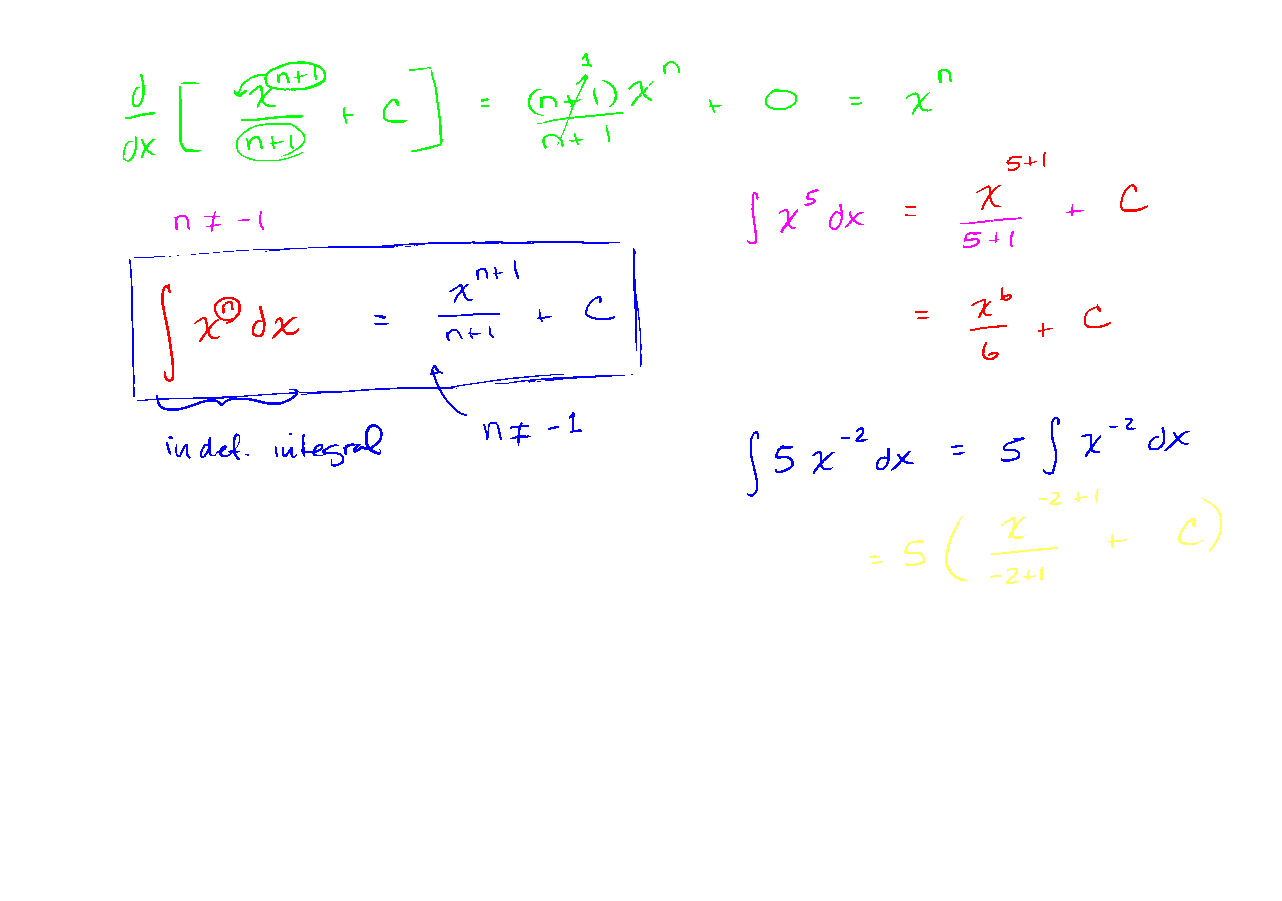 d/dx [ x^(n+1)/(n+1) + C ] = (n+1)x^n/(n+1) 1 + 0 = x^n
n ≠ -1
∫ x^n dx = x^(n+1)/(n+1) + C
indef. integral
n ≠ -1
∫ x^5 dx = x^(5+1)/(5+1) + C
= x^6/6 + C
∫ 5 x^-2 dx = 5 ∫ x^-2 dx
= 5 ( x^(-2+1)/(-2+1) + C )